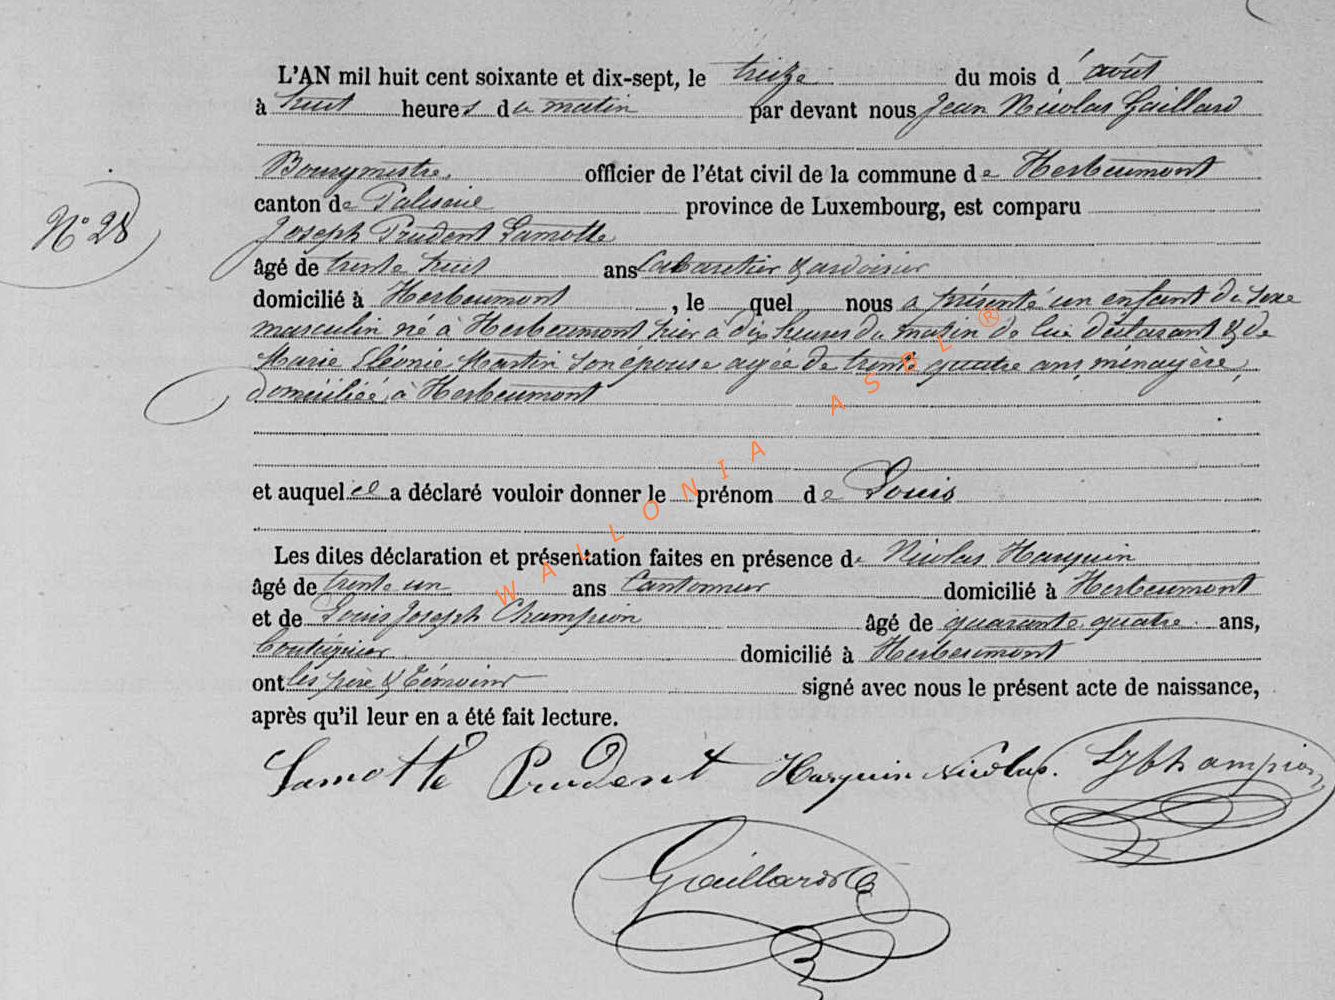 L'AN mil huit cent soixante et dix-sept, le treize du mois d'août
à huit heures du matin par devant nous Jean Nicolas Gaillard
Bourgmestre officier de l'état civil de la commune de Herbeumont
canton de Paliseul province de Luxembourg, est comparu
N° 28
Joseph Prudent Lamotte
âgé de trente huit ans Cabaretier & ardoisier
domicilié à Herbeumont, le quel nous a présenté un enfant du sexe
masculin né à Herbeumont hier à dix heures du matin de lui déclarant & de
Marie Léonie Martin son épouse agée de trente quatre ans, ménagère,
domiciliée à Herbeumont
et auquel il a déclaré vouloir donner le prénom de Louis
Les dites déclaration et présentation faites en présence de Nicolas Harquin
âgé de trente un ans Cantonnier domicilié à Herbeumont
et de Louis Joseph Champion âgé de quarante quatre ans,
domicilié à Herbeumont
ont les père & témoins signé avec nous le présent acte de naissance,
après qu'il leur en a été fait lecture.
Lamotte Prudent Harquin Nicolas. LJChampion
Gaillard
WALLONIA ASBL ®